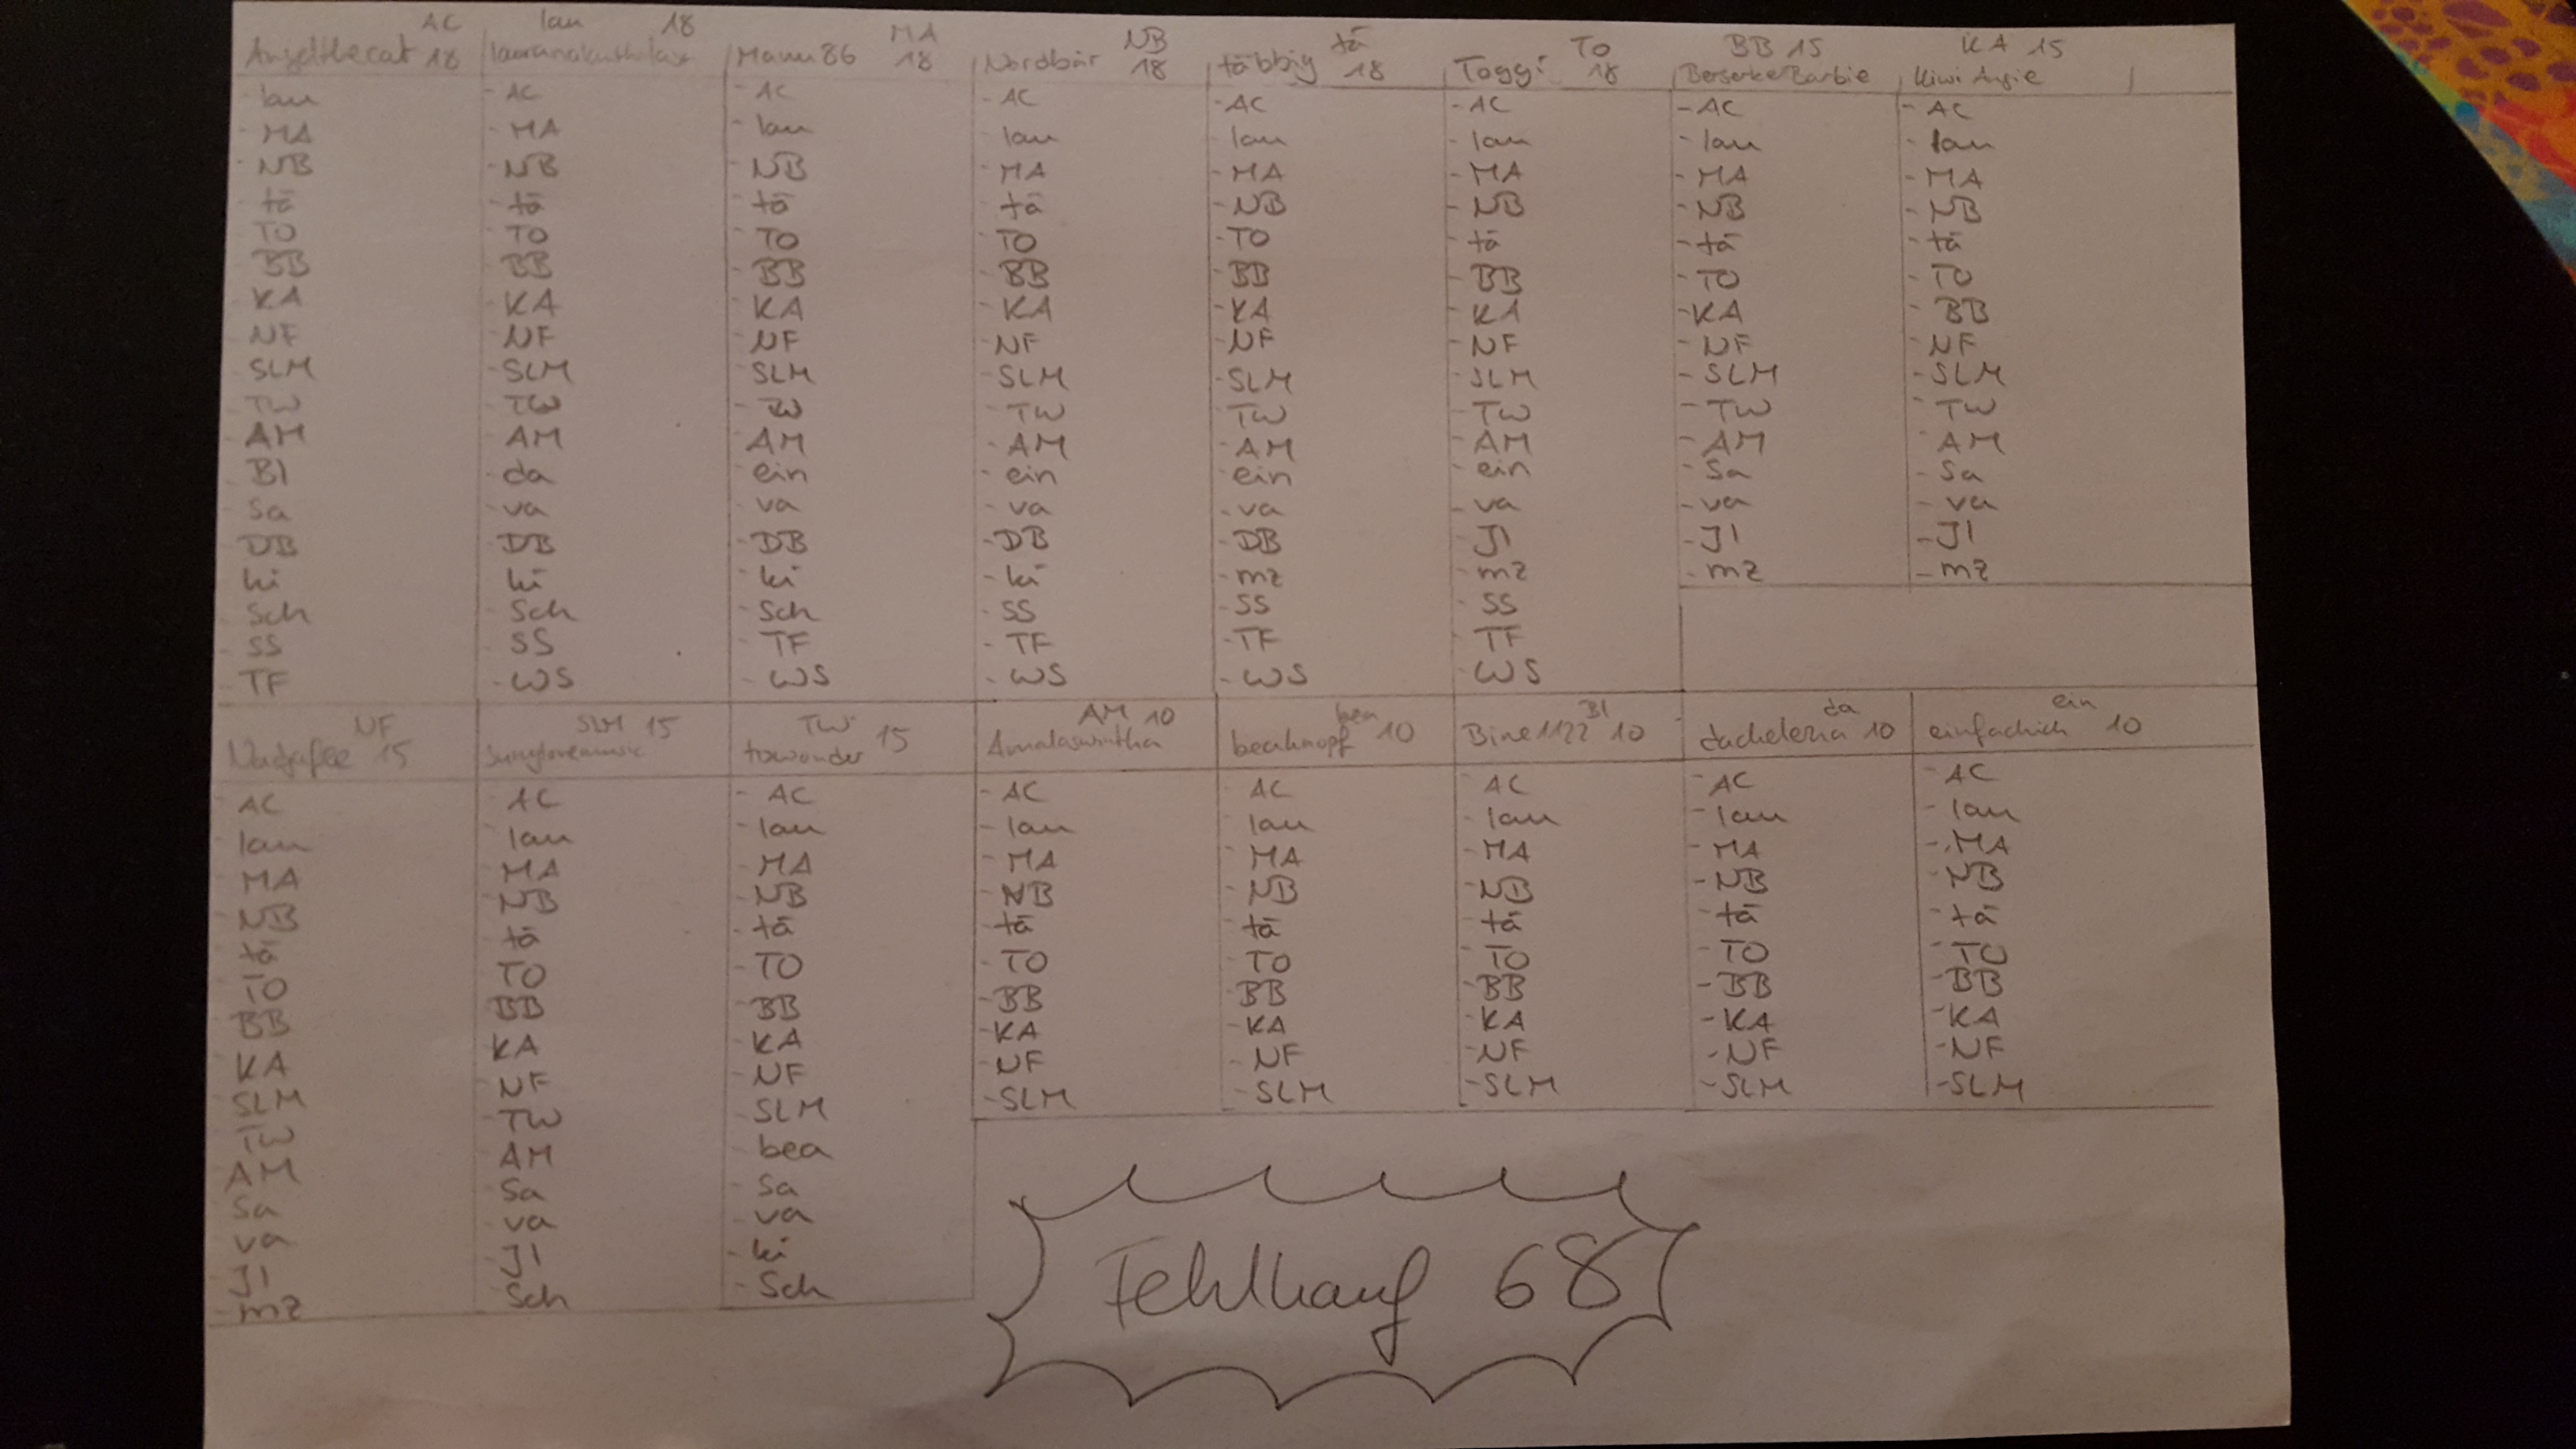 AC lan 18 MA NB tä To BB 15 KA 15
18 Manu86 18 Nordbär 18 täbbig 18 Toggi 18 BerserkerBarbie Kiwi Angie
- lan - AC - AC - AC - AC - AC - AC - AC
- MA - MA - lan - lan - lan - lan - lan - lan
- NB - NB - NB - MA - MA - MA - MA - MA
- tä - tä - tä - tä - NB - NB - NB - NB
- TO - TO - TO - TO - TO - tä - tä - tä
- BB - BB - BB - BB - BB - BB - TO - TO
- KA - KA - KA - KA - KA - KA - KA - BB
- NF - NF - NF - NF - NF - NF - NF - NF
- SLM - SLM - SLM - SLM - SLM - SLM - SLM - SLM
- TW - TW - TW - TW - TW - TW - TW - TW
- AM - AM - AM - AM - AM - AM - AM - AM
- BI - da - ein - ein - ein - ein - Sa - Sa
- Sa - va - va - va - va - va - va - va
- DB - DB - DB - DB - DB - JI - JI - JI
- ki - ki - ki - ki - mz - mz - mz - mz
- Sch - Sch - Sch - SS - SS - SS
- SS - SS - TF - TF - TF - TF
- TF - WS - WS - WS - WS - WS
NF SLM 15 TW AM 10 bea BI da ein
15 towonder 15 Amalaswintha beaknopf 10 Bine1122 10 dachelena 10 einfachich 10
- AC - AC - AC - AC - AC - AC - AC - AC
- lan - lan - lan - lan - lan - lan - lan - lan
- MA - MA - MA - MA - MA - MA - MA - MA
- NB - NB - NB - NB - NB - NB - NB - NB
- tä - tä - tä - tä - tä - tä - tä - tä
- TO - TO - TO - TO - TO - TO - TO - TO
- BB - BB - BB - BB - BB - BB - BB - BB
- KA - KA - KA - KA - KA - KA - KA - KA
- SLM - NF - NF - NF - NF - NF - NF - NF
- TW - TW - SLM - SLM - SLM - SLM - SLM - SLM
- AM - AM - bea
- Sa - Sa - Sa
- va - va - va
- JI - JI - ki
- mz - Sch - Sch
Fehlkauf 68